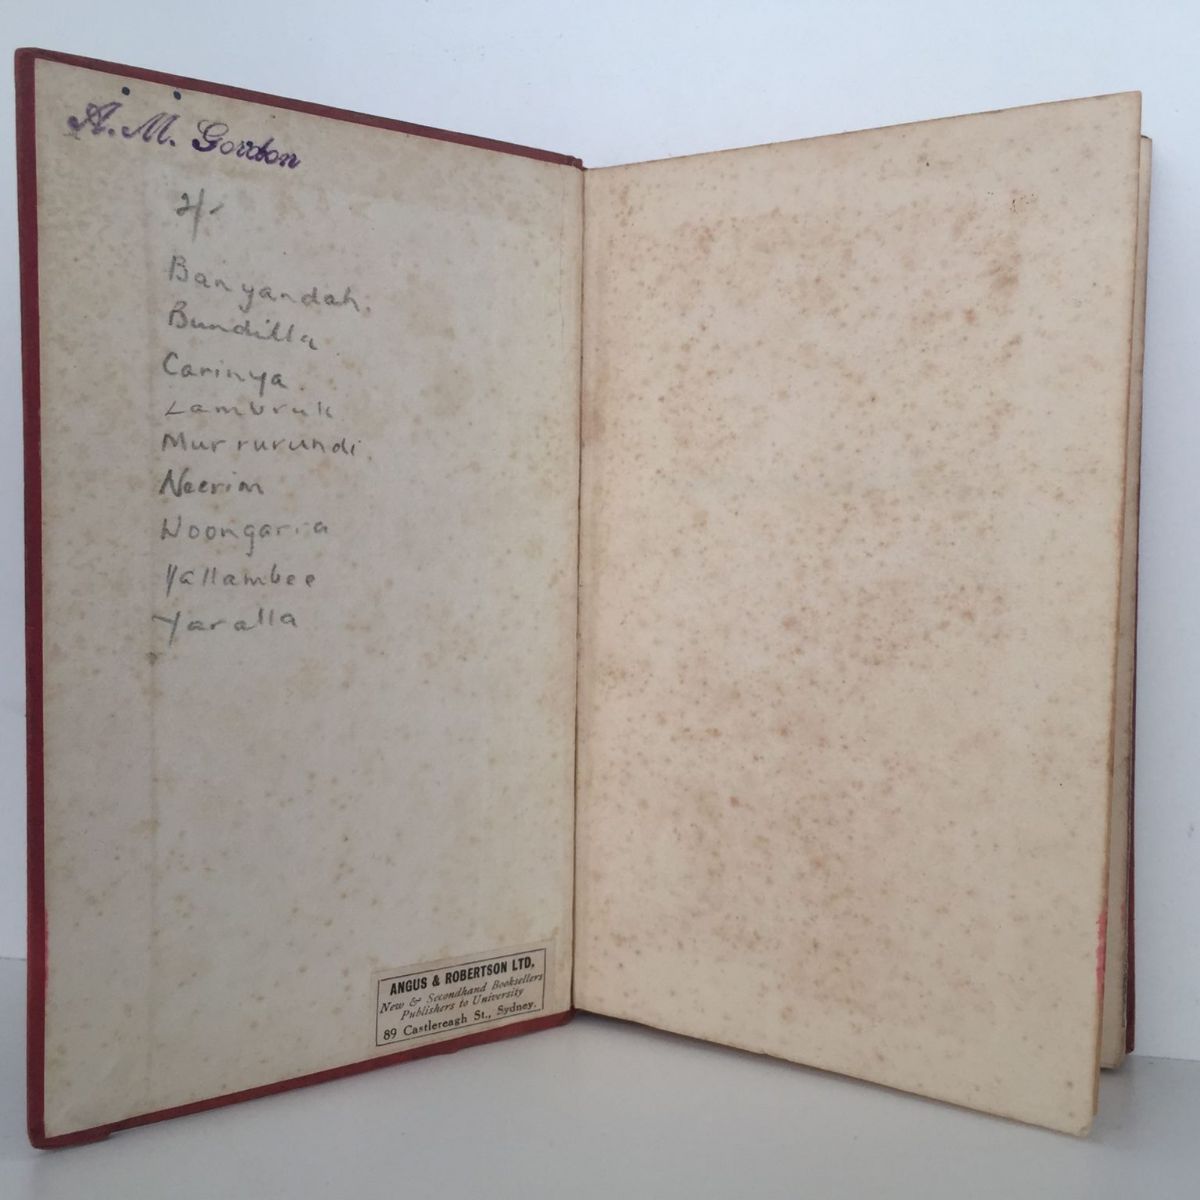 A. M. Gordon
2/-
Banyandah.
Bundilla.
Carinya.
Lamburuk
Murrurundi.
Neerim
Woongarra
Yallambee
Yaralla
ANGUS & ROBERTSON LTD.
New & Secondhand Booksellers
Publishers to University
89 Castlereagh St., Sydney.